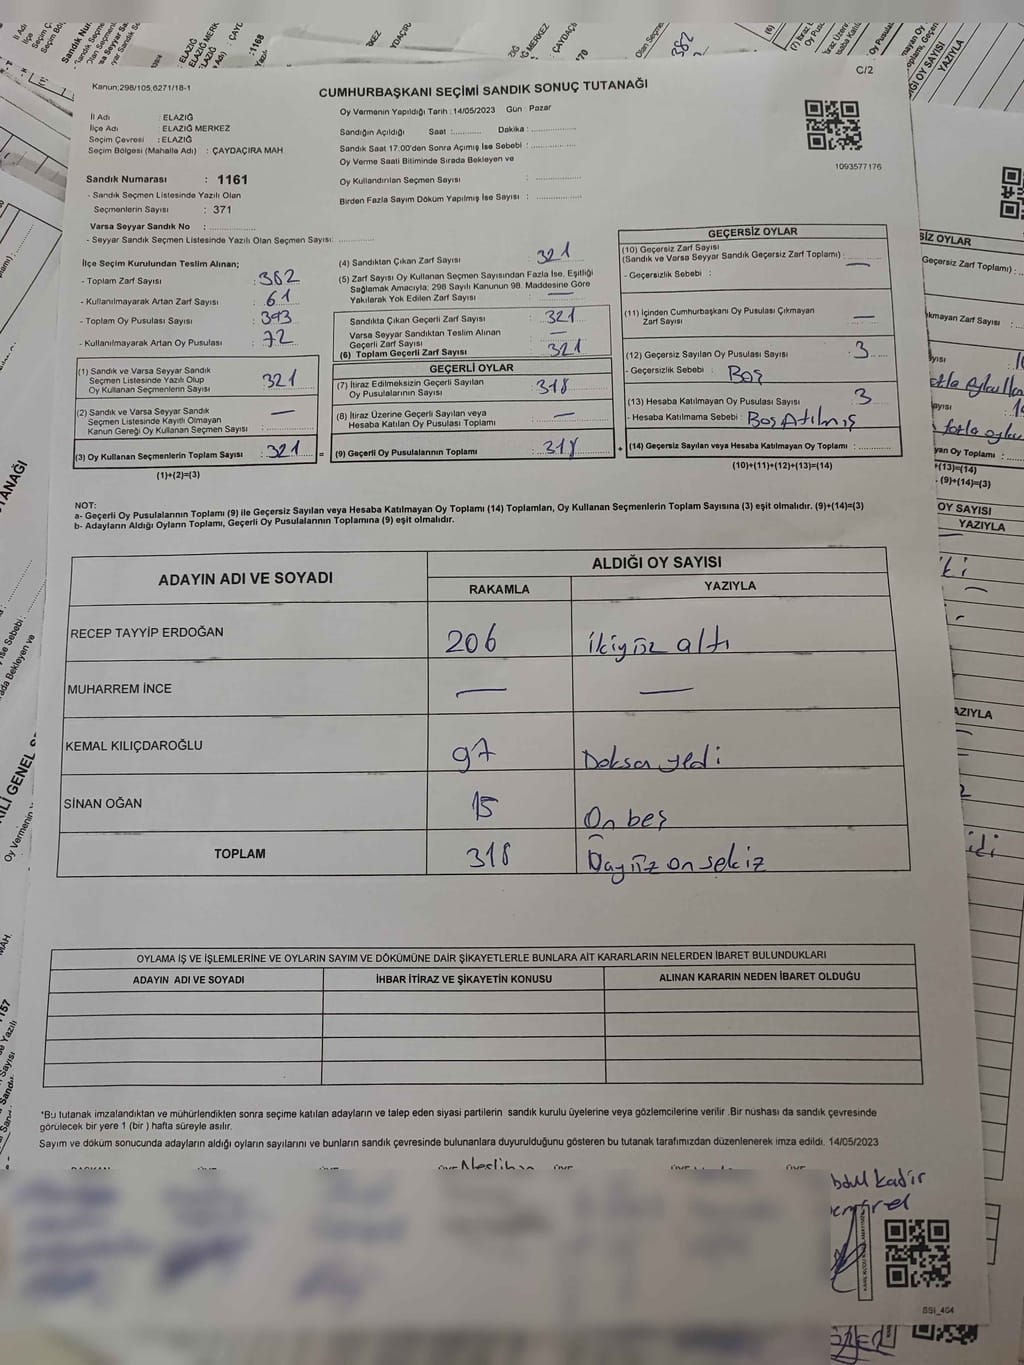 C/2
Kanun;298/105,6271/18-1
CUMHURBAŞKANI SEÇİMİ SANDIK SONUÇ TUTANAĞI
İl Adı : ELAZIĞ
İlçe Adı : ELAZIĞ MERKEZ
Seçim Çevresi : ELAZIĞ
Seçim Bölgesi (Mahalle Adı) : ÇAYDAÇIRA MAH
Oy Vermenin Yapıldığı Tarih : 14/05/2023 Gün : Pazar
Sandığın Açıldığı Saat :........... Dakika :................
Sandık Saat 17:00'den Sonra Açımış İse Sebebi :................
Oy Verme Saati Bitiminde Sırada Bekleyen ve
Oy Kullandırılan Seçmen Sayısı :................
Birden Fazla Sayım Döküm Yapılmış İse Sayısı :................
1093577176
Sandık Numarası : 1161
- Sandık Seçmen Listesinde Yazılı Olan
Seçmenlerin Sayısı : 371
Varsa Seyyar Sandık No :................
- Seyyar Sandık Seçmen Listesinde Yazılı Olan Seçmen Sayısı:............
İlçe Seçim Kurulundan Teslim Alınan;
- Toplam Zarf Sayısı : 382
- Kullanılmayarak Artan Zarf Sayısı : 61
- Toplam Oy Pusulası Sayısı : 393
- Kullanılmayarak Artan Oy Pusulası : 72
(1) Sandık ve Varsa Seyyar Sandık
Seçmen Listesinde Yazılı Olup
Oy Kullanan Seçmenlerin Sayısı : 321
(2) Sandık ve Varsa Seyyar Sandık
Seçmen Listesinde Kayıtlı Olmayan
Kanun Gereği Oy Kullanan Seçmen Sayısı : —
(3) Oy Kullanan Seçmenlerin Toplam Sayısı : 321 =
(1)+(2)=(3)
(4) Sandıktan Çıkan Zarf Sayısı : 321
(5) Zarf Sayısı Oy Kullanan Seçmen Sayısından Fazla İse, Eşitliği
Sağlamak Amacıyla; 298 Sayılı Kanunun 98. Maddesine Göre
Yakılarak Yok Edilen Zarf Sayısı : —
Sandıkta Çıkan Geçerli Zarf Sayısı : 321
Varsa Seyyar Sandıktan Teslim Alınan
Geçerli Zarf Sayısı : —
(6) Toplam Geçerli Zarf Sayısı : 321
GEÇERLİ OYLAR
(7) İtiraz Edilmeksizin Geçerli Sayılan
Oy Pusulalarının Sayısı : 318
(8) İtiraz Üzerine Geçerli Sayılan veya
Hesaba Katılan Oy Pusulası Toplamı : —
(9) Geçerli Oy Pusulalarının Toplamı : 318 +
GEÇERSİZ OYLAR
(10) Geçersiz Zarf Sayısı
(Sandık ve Varsa Seyyar Sandık Geçersiz Zarf Toplamı) : —
- Geçersizlik Sebebi :
(11) İçinden Cumhurbaşkanı Oy Pusulası Çıkmayan
Zarf Sayısı : —
(12) Geçersiz Sayılan Oy Pusulası Sayısı : 3
- Geçersizlik Sebebi : Boş
(13) Hesaba Katılmayan Oy Pusulası Sayısı : 3
- Hesaba Katılmama Sebebi : Boş Atılmış
(14) Geçersiz Sayılan veya Hesaba Katılmayan Oy Toplamı :............
(10)+(11)+(12)+(13)=(14)
NOT:
a- Geçerli Oy Pusulalarının Toplamı (9) ile Geçersiz Sayılan veya Hesaba Katılmayan Oy Toplamı (14) Toplamları, Oy Kullanan Seçmenlerin Toplam Sayısına (3) eşit olmalıdır. (9)+(14)=(3)
b- Adayların Aldığı Oyların Toplamı, Geçerli Oy Pusulalarının Toplamına (9) eşit olmalıdır.
ADAYIN ADI VE SOYADI
ALDIĞI OY SAYISI
RAKAMLA YAZIYLA
RECEP TAYYİP ERDOĞAN 206 ikiyüz altı
MUHARREM İNCE — —
KEMAL KILIÇDAROĞLU 97 Doksan yedi
SİNAN OĞAN 15 On beş
TOPLAM 318 Üçyüz on sekiz
OYLAMA İŞ VE İŞLEMLERİNE VE OYLARIN SAYIM VE DÖKÜMÜNE DAİR ŞİKAYETLERLE BUNLARA AİT KARARLARIN NELERDEN İBARET BULUNDUKLARI
ADAYIN ADI VE SOYADI İHBAR İTİRAZ VE ŞİKAYETİN KONUSU ALINAN KARARIN NEDEN İBARET OLDUĞU
*Bu tutanak imzalandıktan ve mühürlendikten sonra seçime katılan adayların ve talep eden siyasi partilerin sandık kurulu üyelerine veya gözlemcilerine verilir .Bir nüshası da sandık çevresinde
görülecek bir yere 1 (bir ) hafta süreyle asılır.
Sayım ve döküm sonucunda adayların aldığı oyların sayılarını ve bunların sandık çevresinde bulunanlara duyurulduğunu gösteren bu tutanak tarafımızdan düzenlenerek imza edildi. 14/05/2023
SSI_404